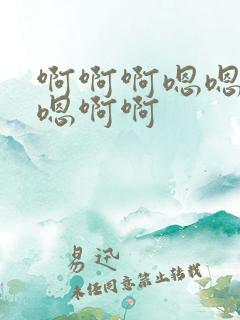 啊啊啊嗯嗯
嗯啊啊
易迅
未经同意禁止转载